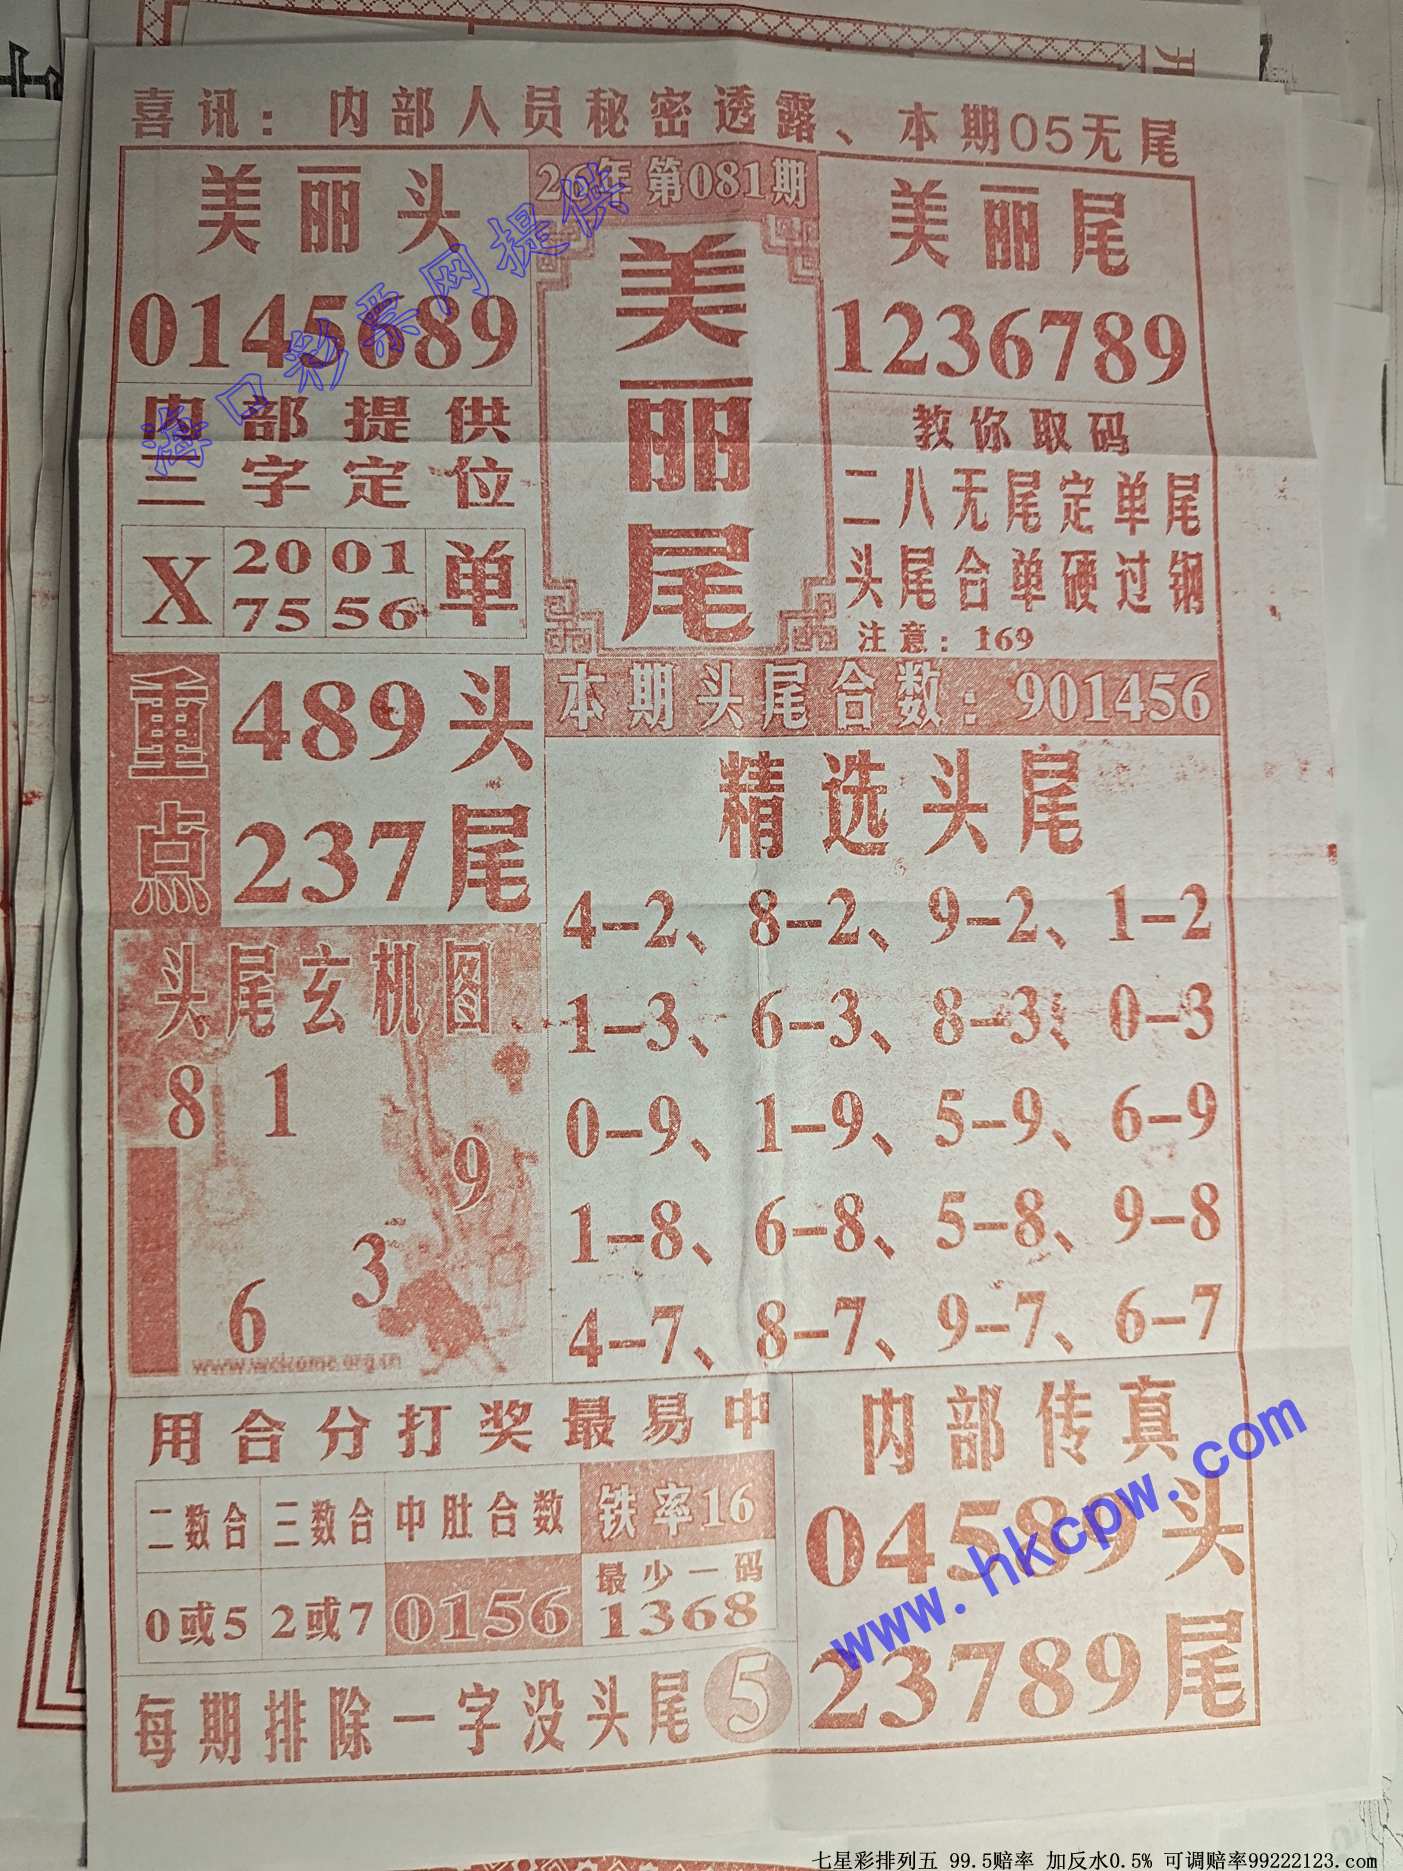 喜讯：内部人员秘密透露、本期05无尾
美丽头
0145689
26年第081期
美丽尾
美丽尾
1236789
海口彩票网提供
内部提供
三字定位
X 20 01 单
75 56
教你取码
二八无尾定单尾
头尾合单硬过钢
注意：169
重点
489头
237尾
本期头尾合数：901456
精选头尾
4-2、8-2、9-2、1-2
1-3、6-3、8-3、0-3
0-9、1-9、5-9、6-9
1-8、6-8、5-8、9-8
4-7、8-7、9-7、6-7
头尾玄机图
8 1
9
3
6
www.welcome.org.cn
用合分打奖最易中
二数合 三数合 中肚合数 铁率16
0或5 2或7 0156 最少一码
1368
每期排除一字没头尾5
内部传真
04589头
23789尾
www.hkcpw.com
七星彩排列五 99.5赔率 加反水0.5% 可调赔率99222123.com